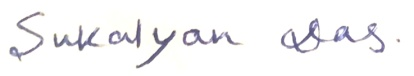 Sukalyan Das.